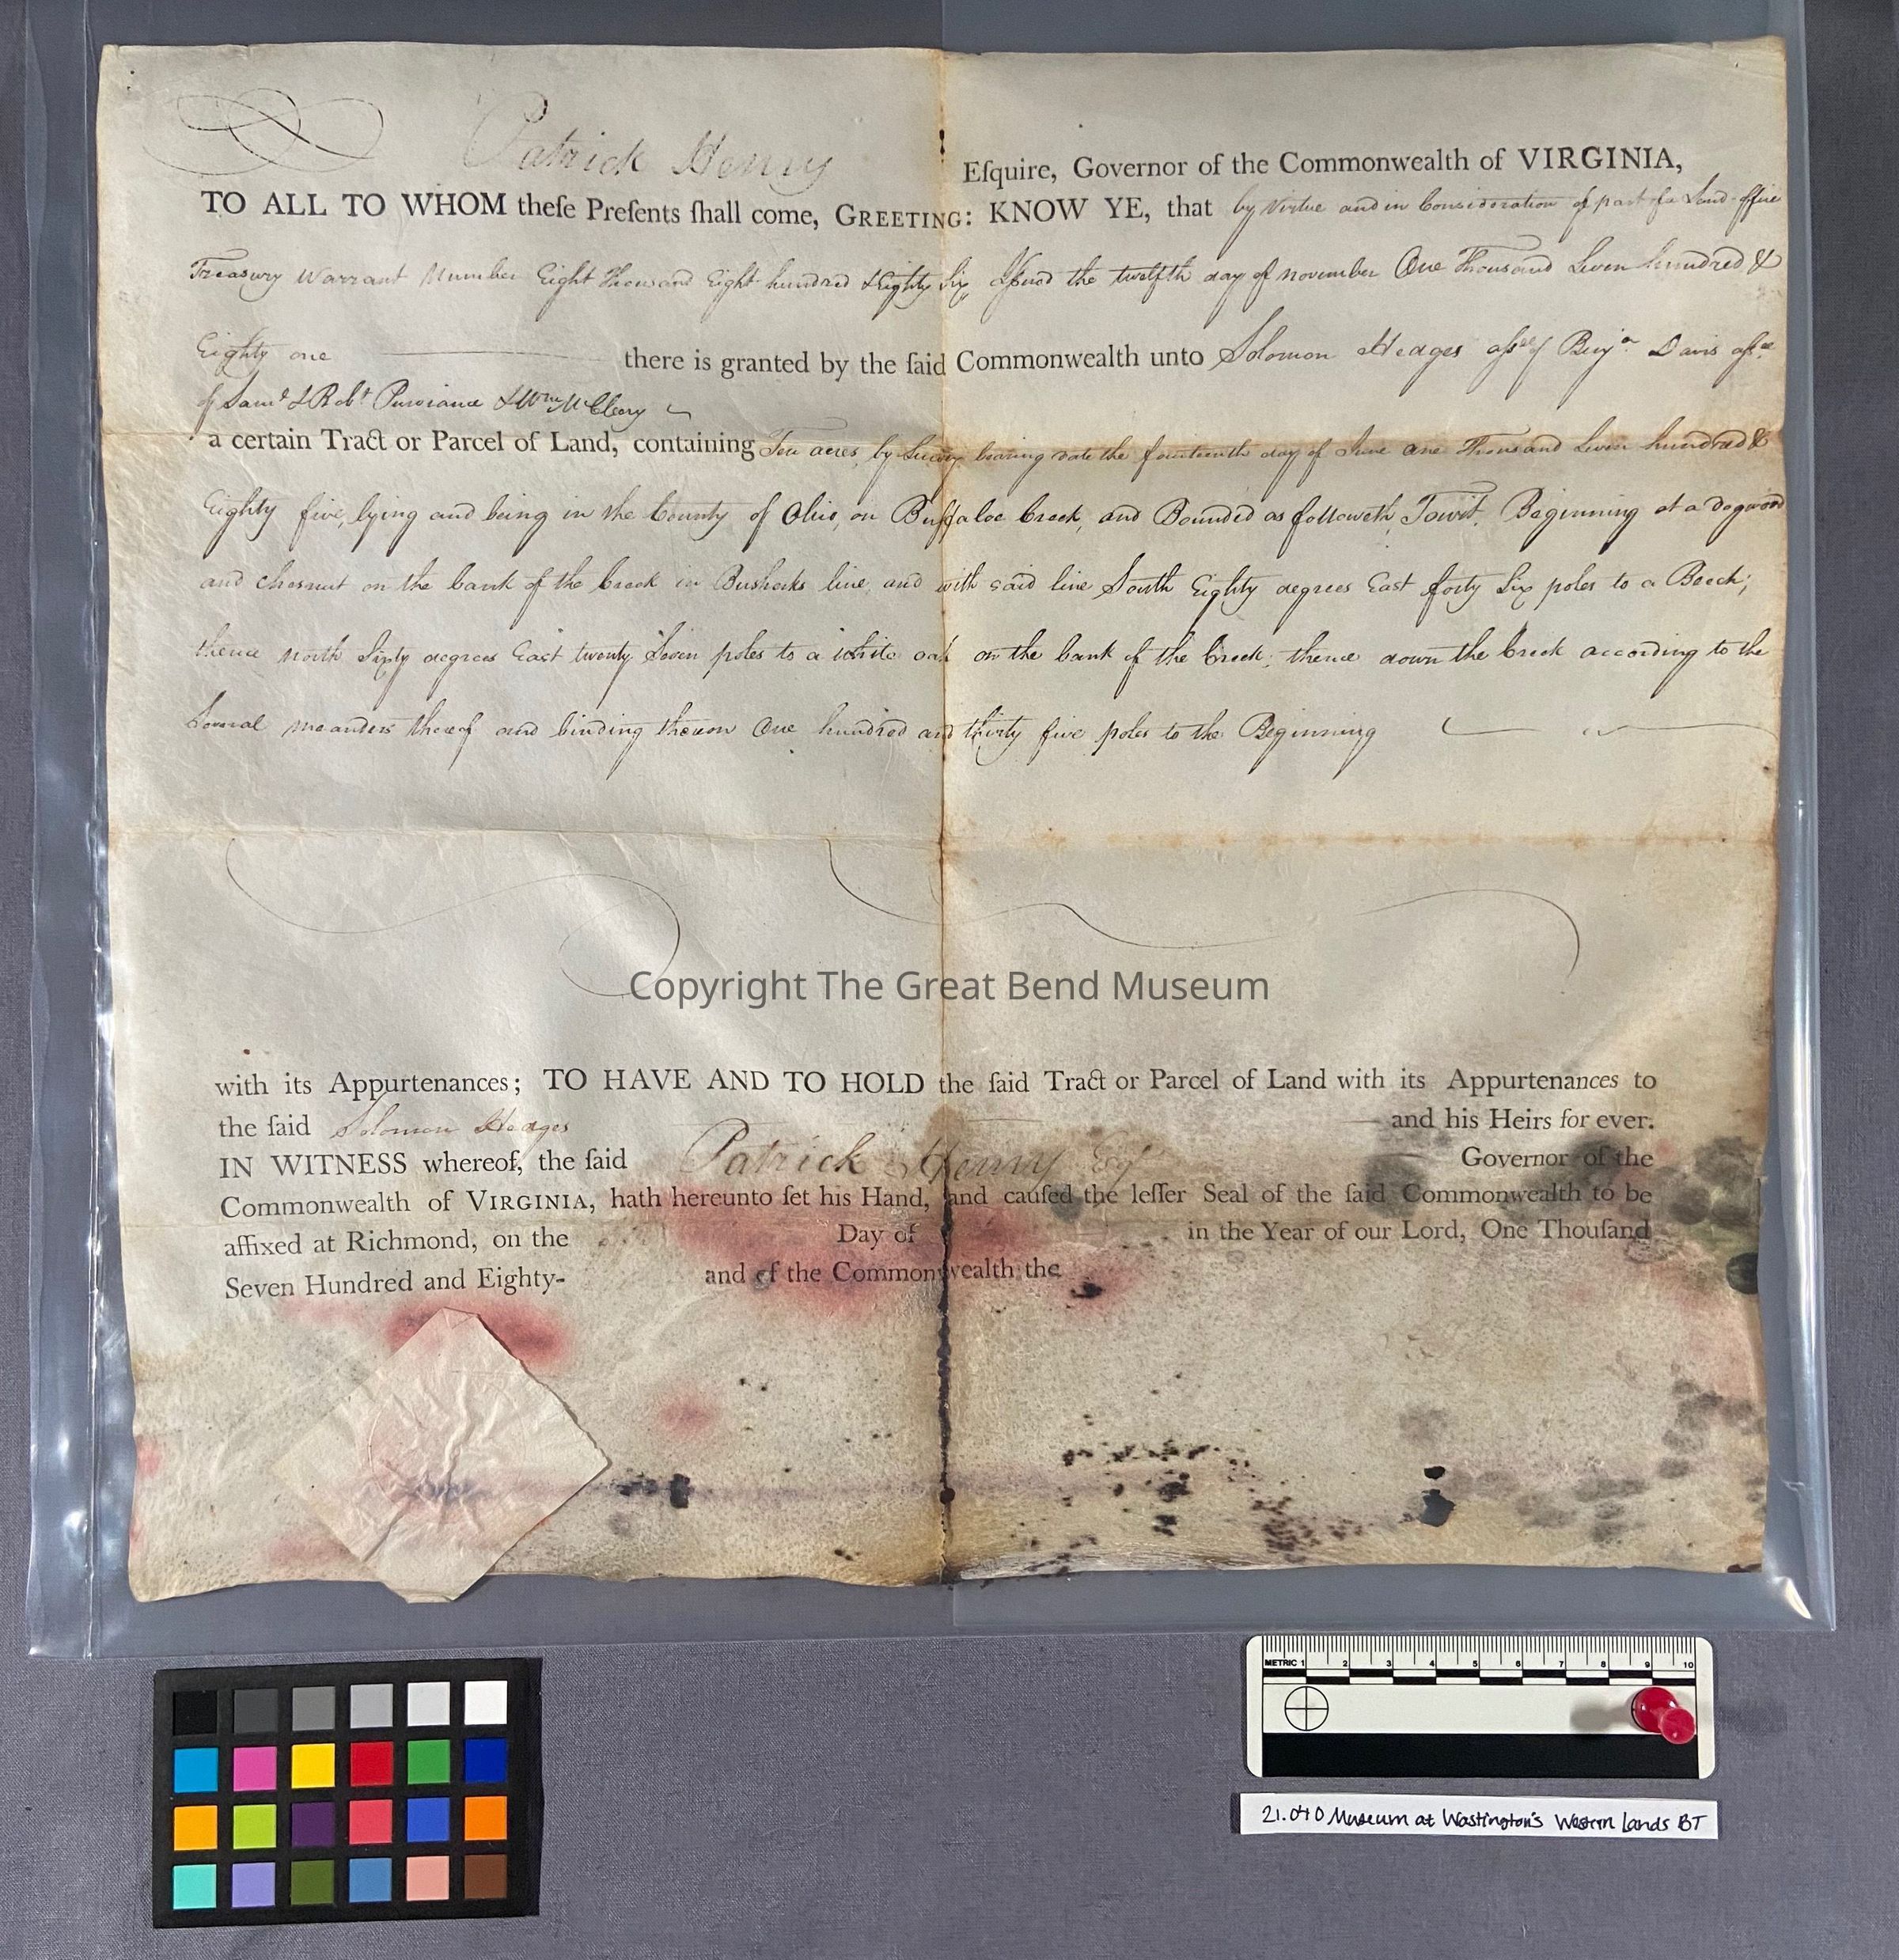 Patrick Henry Eſquire, Governor of the Commonwealth of VIRGINIA,
TO ALL TO WHOM theſe Preſents ſhall come, GREETING: KNOW YE, that by Virtue and in Consideration of part of a Land-office
Treasury Warrant Number Eight Thousand Eight hundred & Eighty Six Issued the twelfth day of november One Thousand Seven hundred &
Eighty one there is granted by the ſaid Commonwealth unto Solomon Hedges assee of Benja Davis assee
of Saml & Robt Purviance & Wm McCleary
a certain Tract or Parcel of Land, containing Ten acres, by Survey bearing date the fourteenth day of June one Thousand Seven hundred &
Eighty five, lying and being in the County of Ohio, on Buffaloe Creek, and Bounded as followeth, Towit, Beginning at a dogwood
and chesnut on the bank of the Creek in Bushecks line, and with said line South Eighty degrees East forty Six poles to a Beech;
thence north Sixty degrees East twenty Seven poles to a white oak on the bank of the Creek, thence down the Creek according to the
Several meanders thereof and binding thereon One hundred and thirty five poles to the Beginning
Copyright The Great Bend Museum
with its Appurtenances; TO HAVE AND TO HOLD the ſaid Tract or Parcel of Land with its Appurtenances to
the ſaid Solomon Hedges and his Heirs for ever.
IN WITNESS whereof, the ſaid Patrick Henry Esq Governor of the
Commonwealth of VIRGINIA, hath hereunto ſet his Hand, and cauſed the leſſer Seal of the ſaid Commonwealth to be
affixed at Richmond, on the Day of in the Year of our Lord, One Thouſand
Seven Hundred and Eighty- and of the Commonwealth the
METRIC 1 2 3 4 5 6 7 8 9 10
21.040 Museum at Wastington's Western Lands BT